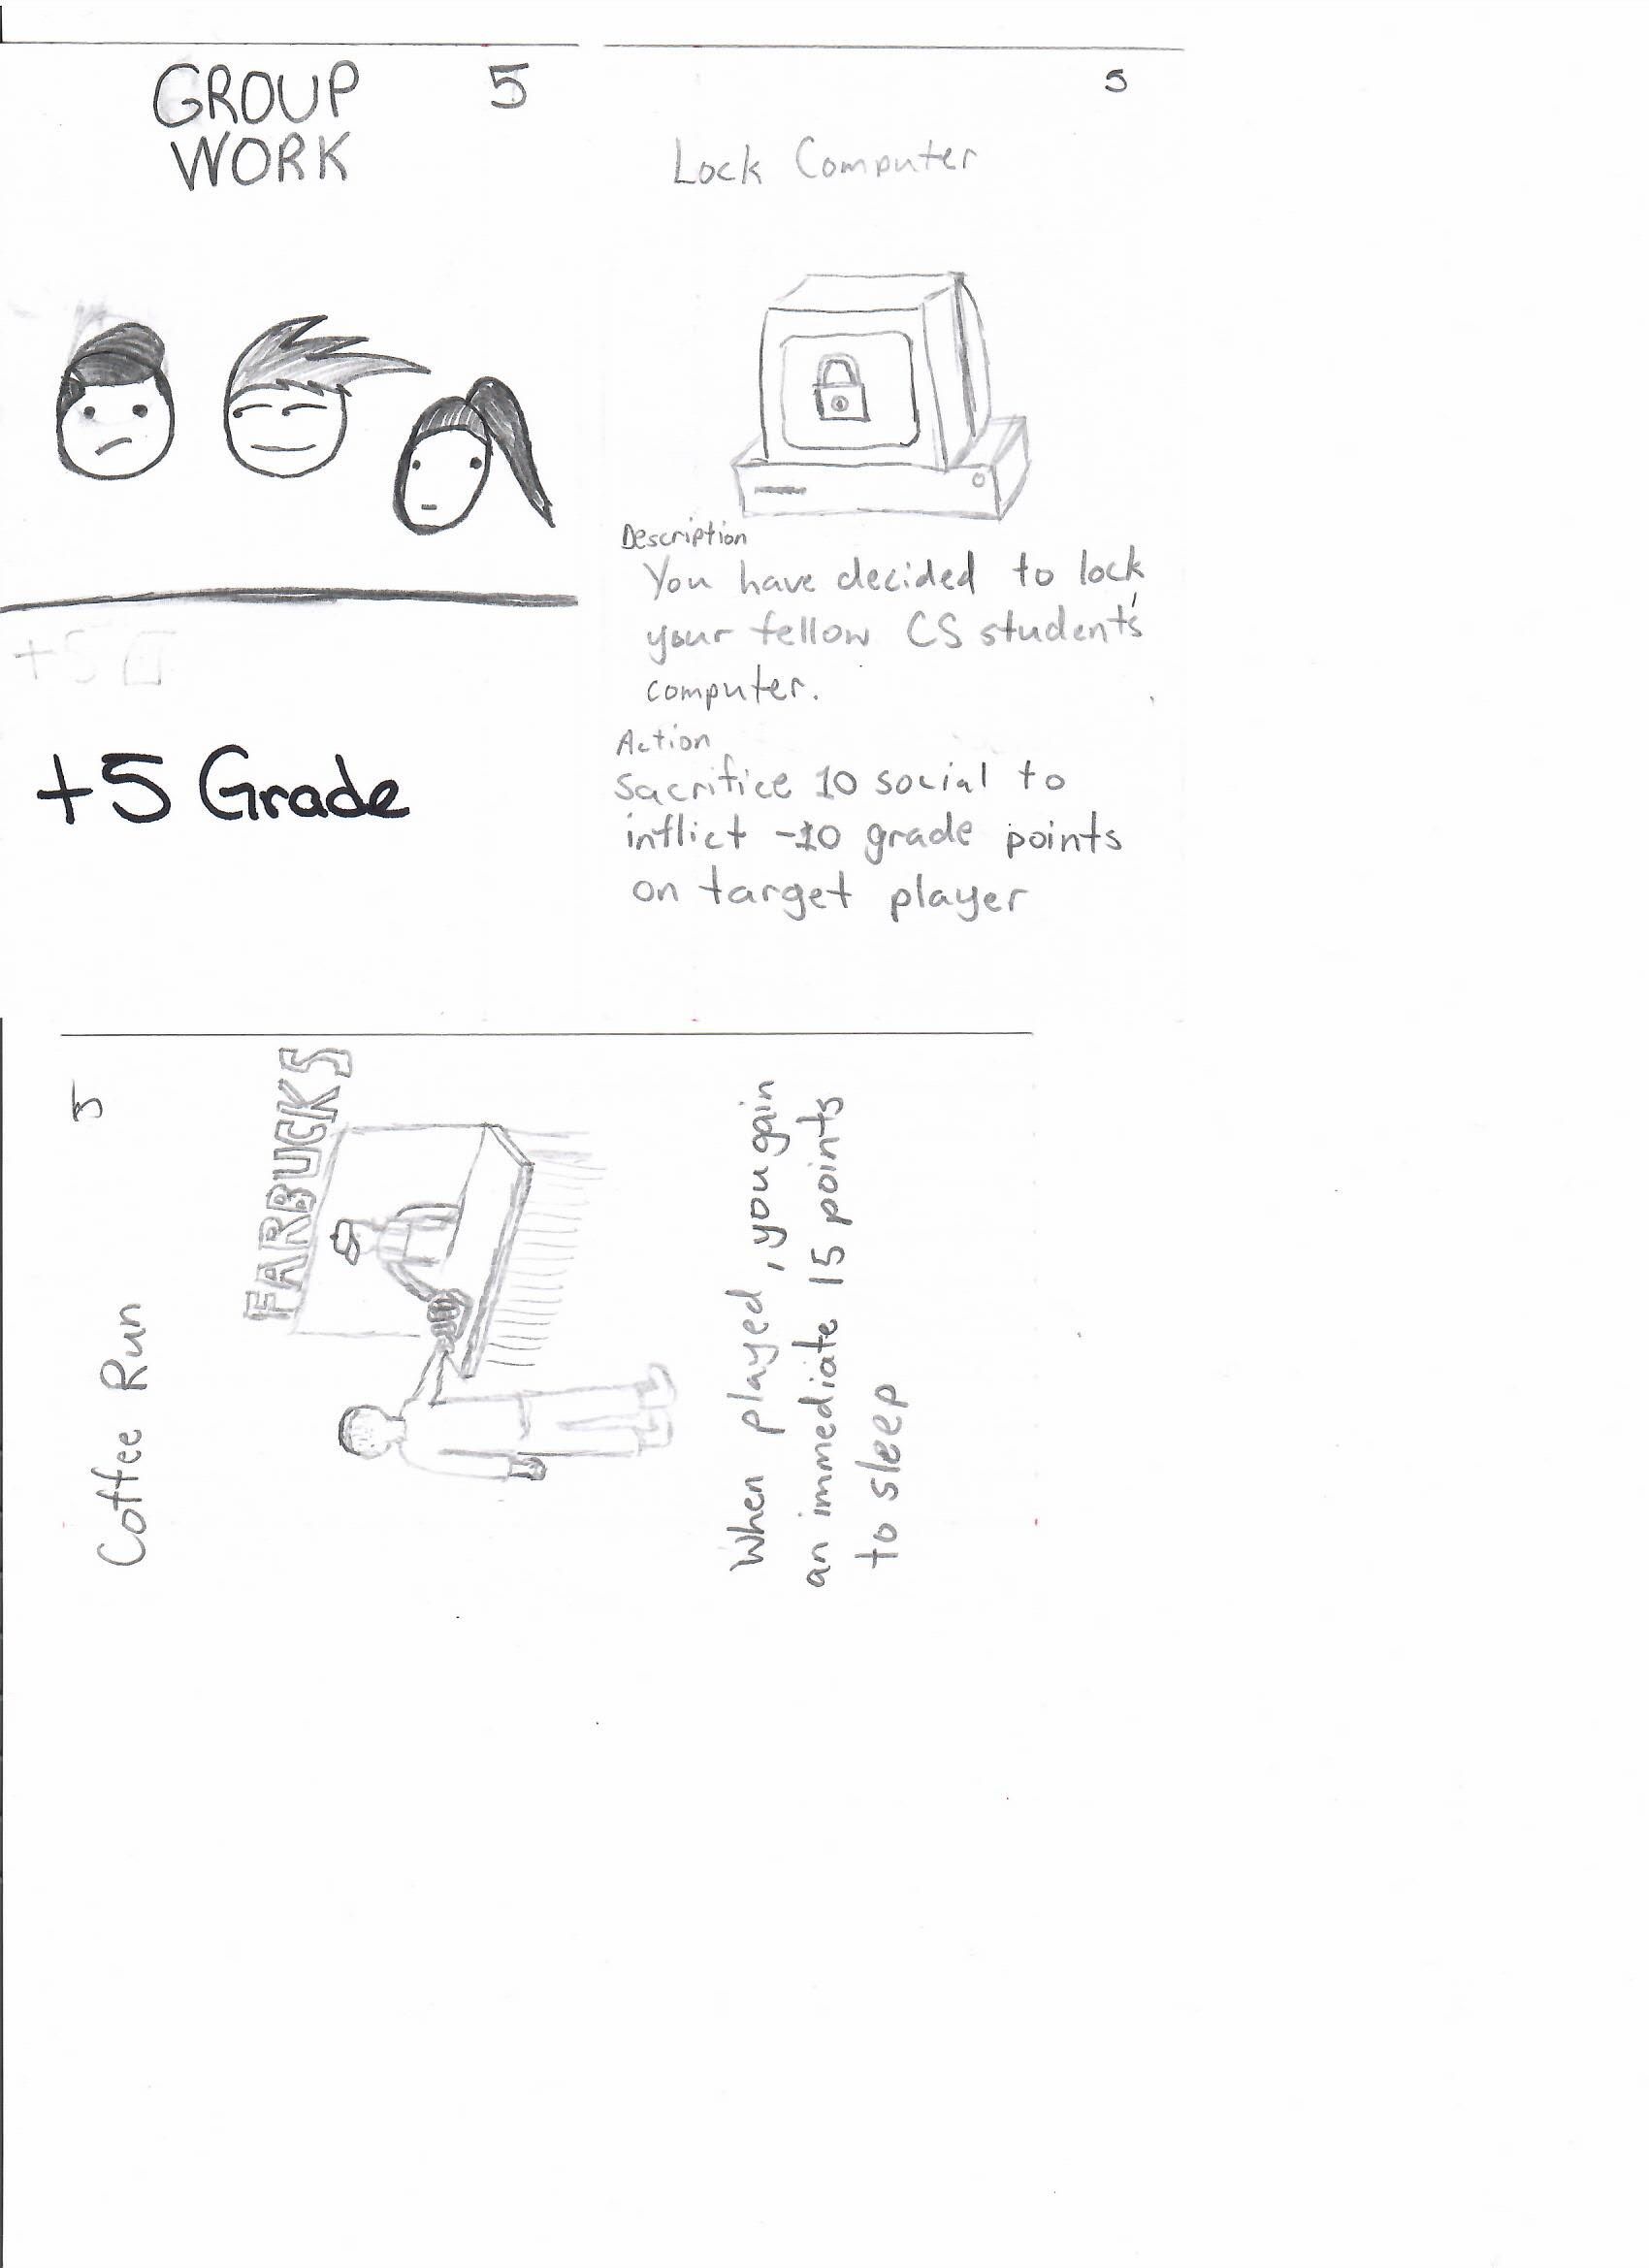 GROUP
WORK
5
+5
+5 Grade
5
Lock Computer
Description
You have decided to lock
your fellow CS student's
computer.
Action
Sacrifice 10 social to
inflict -10 grade points
on target player
5
Coffee Run
FARBUCKS
When played, you gain
an immediate 15 points
to sleep